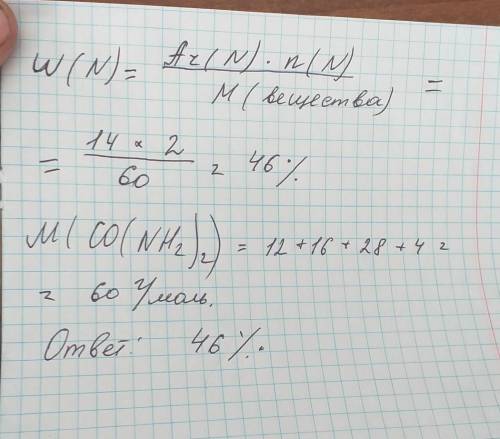 W(N) = Ar(N) · n(N) / M(вещества) =
= 14 × 2 / 60 = 46%
M(CO(NH₂)₂) = 12 + 16 + 28 + 4 =
= 60 г/моль.
Ответ: 46%.